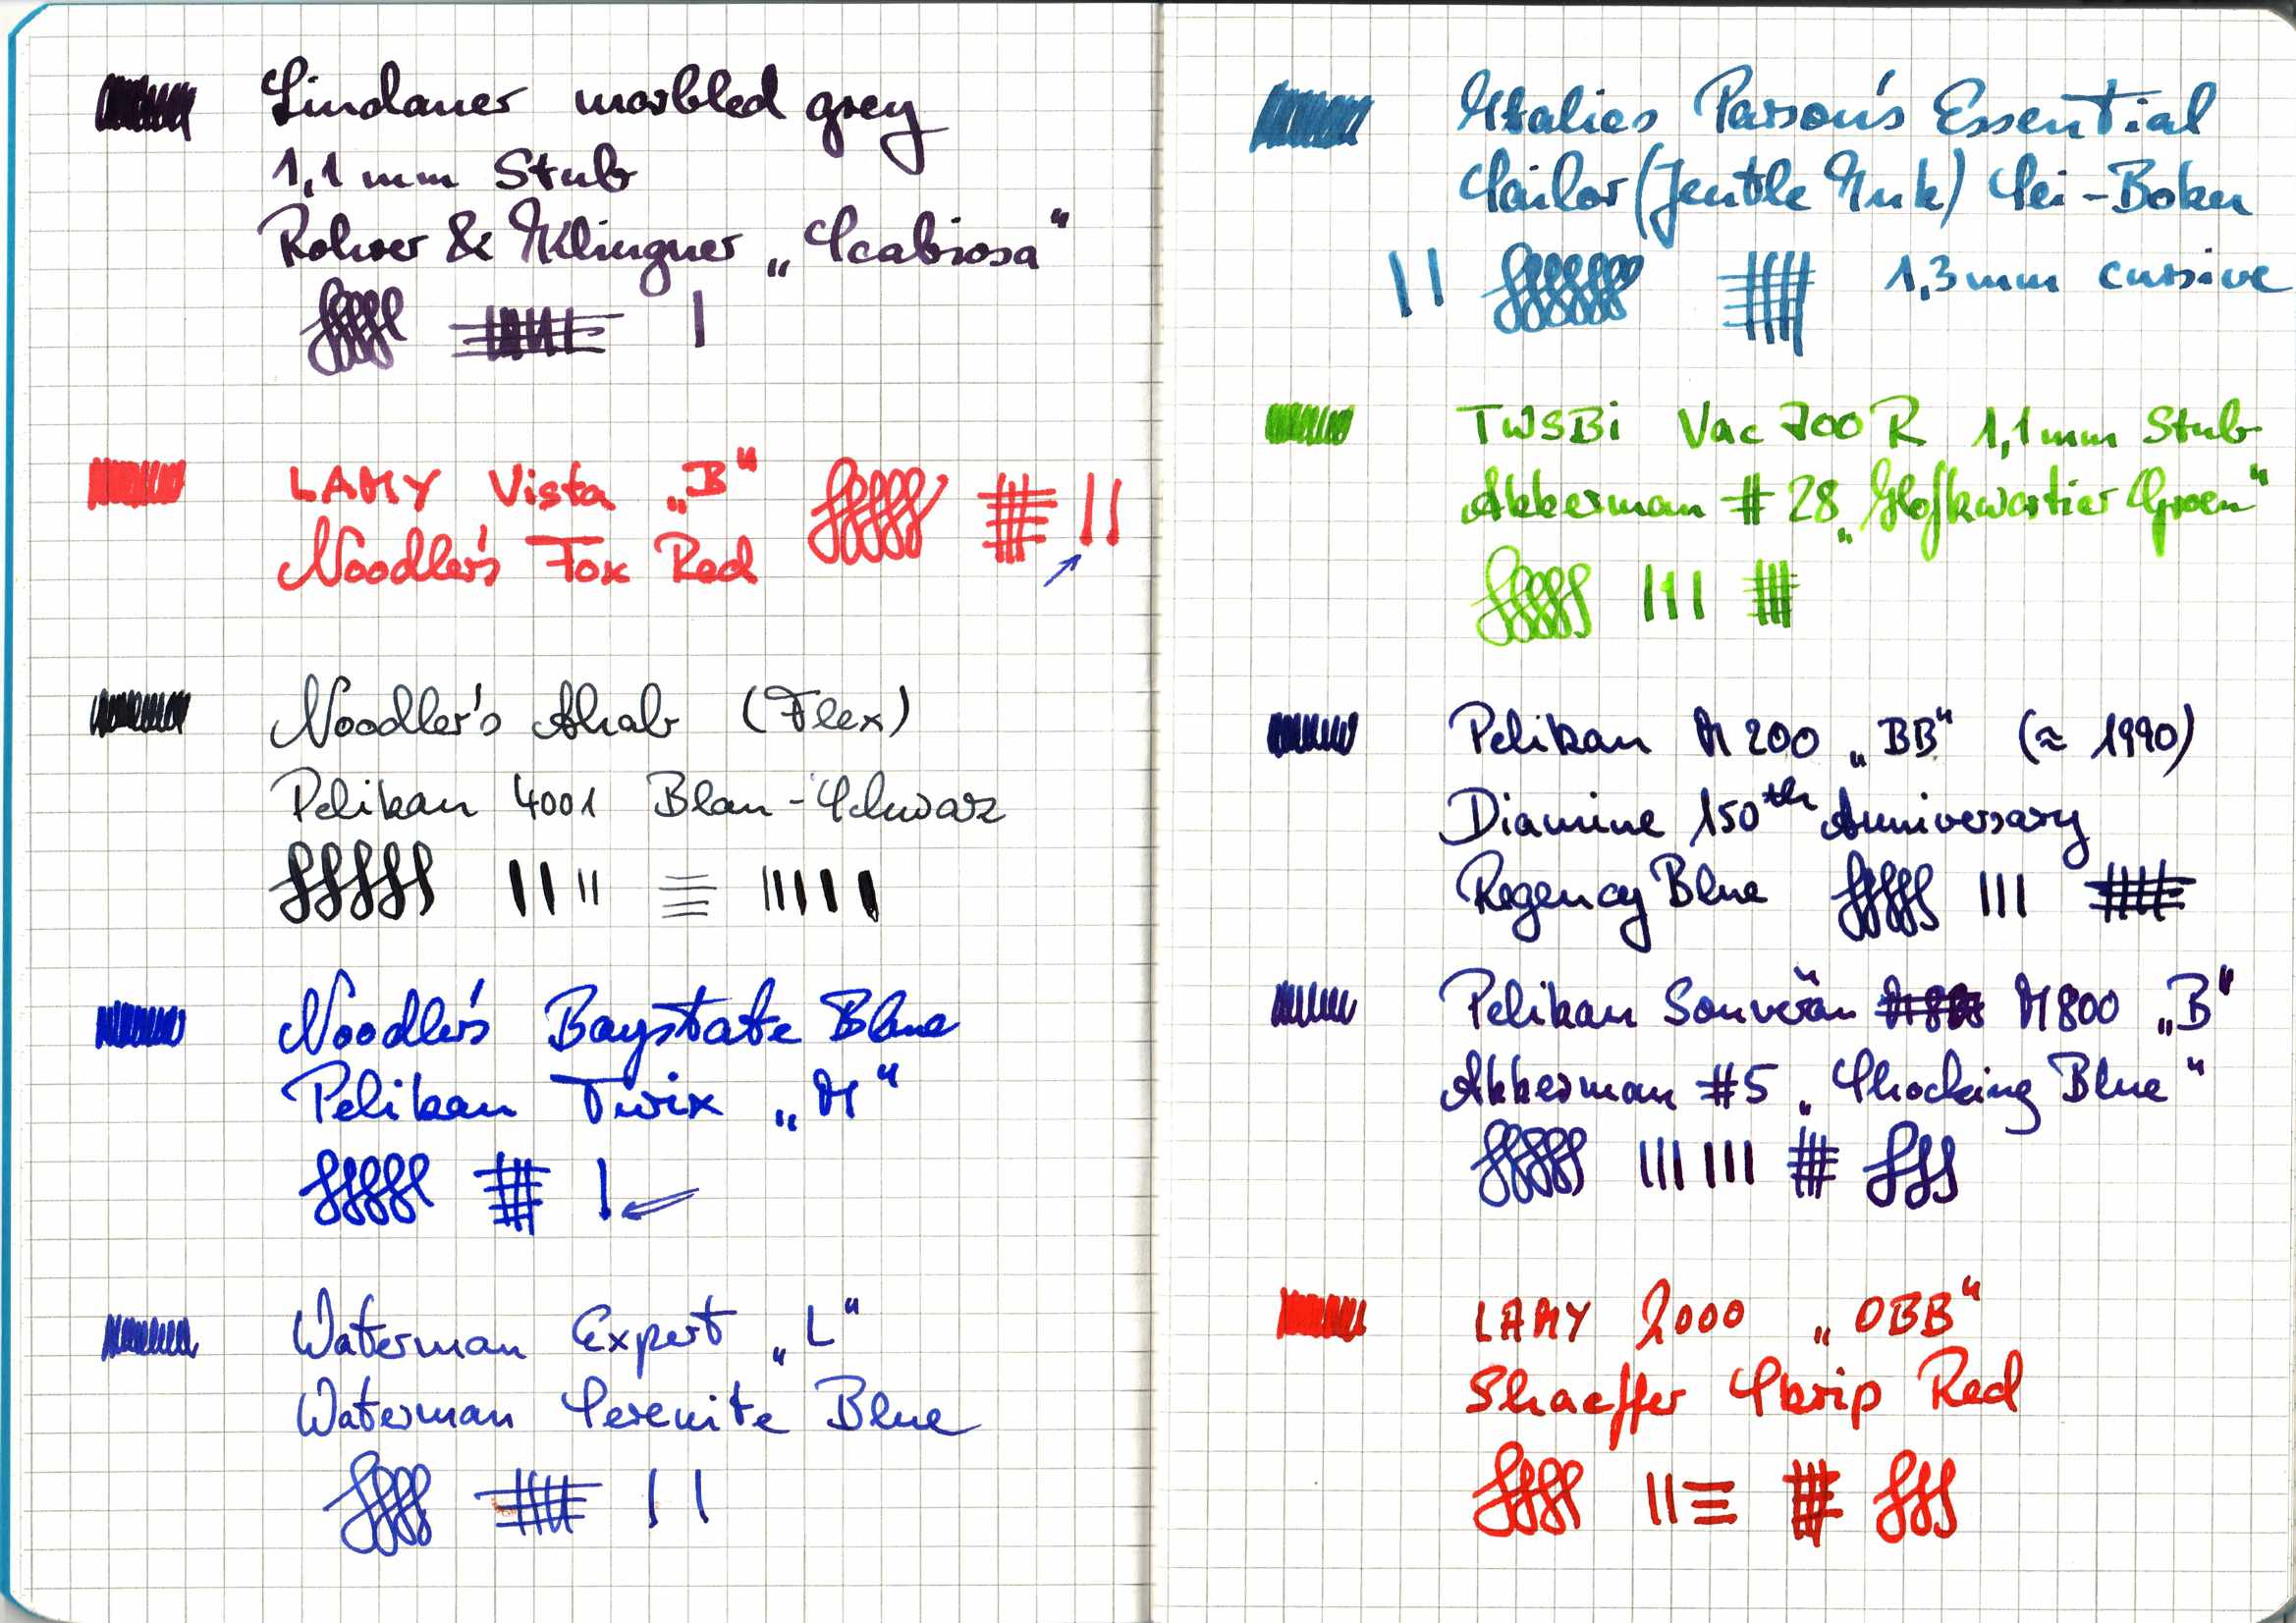 Lindauer marbled grey
1,1 mm Stub
Rohrer & Klingner „Scabiosa“
LAMY Vista „B“
Noodler's Fox Red
Noodler's Ahab (Flex)
Pelikan 4001 Blau-Schwarz
Noodler's Baystate Blue
Pelikan Twix „M“
Waterman Expert „L“
Waterman Serenite Blue
Italics Parson's Essential
Sailor (Jentle Ink) Sei-Boku
1,3 mm cursive
TWSBi Vac 700 R 1,1 mm Stub
Akkerman # 28 „Hofkwartier Groen“
Pelikan M 200 „BB“ (≈ 1990)
Diamine 150th Anniversary
Regency Blue
Pelikan Souverän M800 „B“
Akkerman #5 „Shocking Blue“
LAMY 2000 „OBB“
Shaeffer Skrip Red